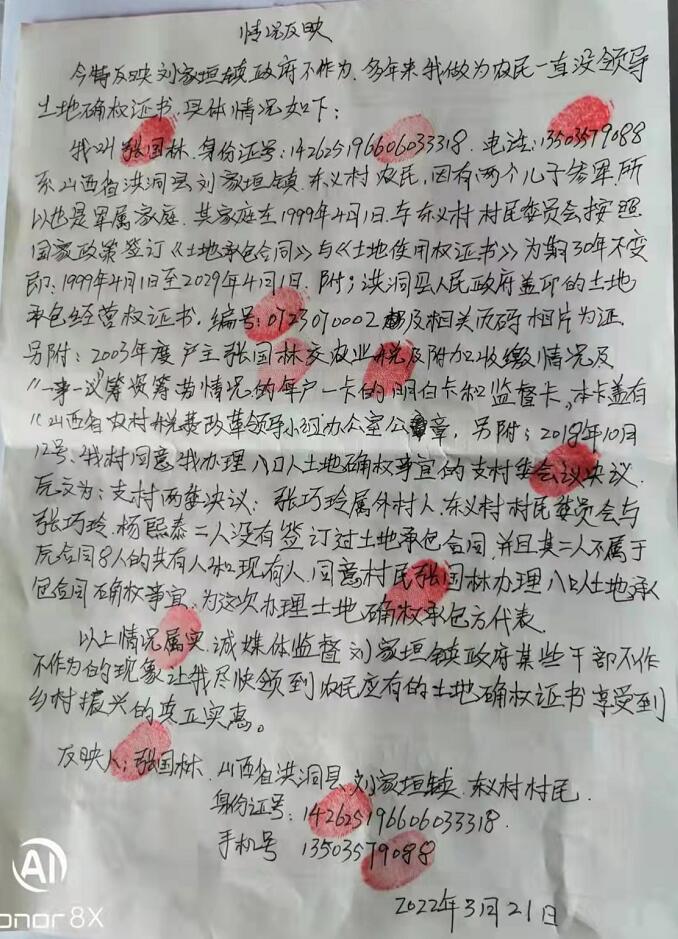 情况反映
今特反映刘家垣镇政府不作为,多年来我做为农民一直没领导
土地确权证书,具体情况如下:
我叫张国林,身份证号:142625196606033318.电话:13503579088
系山西省洪洞县刘家垣镇东义村农民,因有两个儿子参军,所
以也是军属家庭.其家庭在1999年4月1日与东义村村民委员会按照
国家政策签订《土地承包合同》与《土地使用权证书》为期30年不变
即:1999年4月1日至2029年4月1日.附:洪洞县人民政府盖印的土地
承包经营权证书,编号:0723070002 及相关页码相片为证.
另附:2003年度户主张国林交农业税及附加收缴情况及
"一事一议"筹资筹劳情况的每户一卡的明白卡和监督卡,本卡盖有
"山西省农村税费改革领导小组办公室公章,另附:2018年10月
12号,我村同意我办理八口人土地确权事宜的支村委会议决议.
原文为:支村两委决议:张巧玲属外村人,东义村村民委员会与
张巧玲、杨熙泰二人没有签订过土地承包合同,并且其二人不属于
原合同8人的共有人和现有人,同意村民张国林办理八口人土地承
包合同确权事宜,为这次办理土地确权承包方代表.
以上情况属实,诚媒体监督刘家垣镇政府某些干部不作
不作为的现象让我尽快领到农民应有的土地确权证书享受到
乡村振兴的真正实惠。
反映人:张国林.山西省洪洞县刘家垣镇东义村村民.
身份证号:142625196606033318.
手机号 13503579088
2022年3月21日
AI
onor 8X